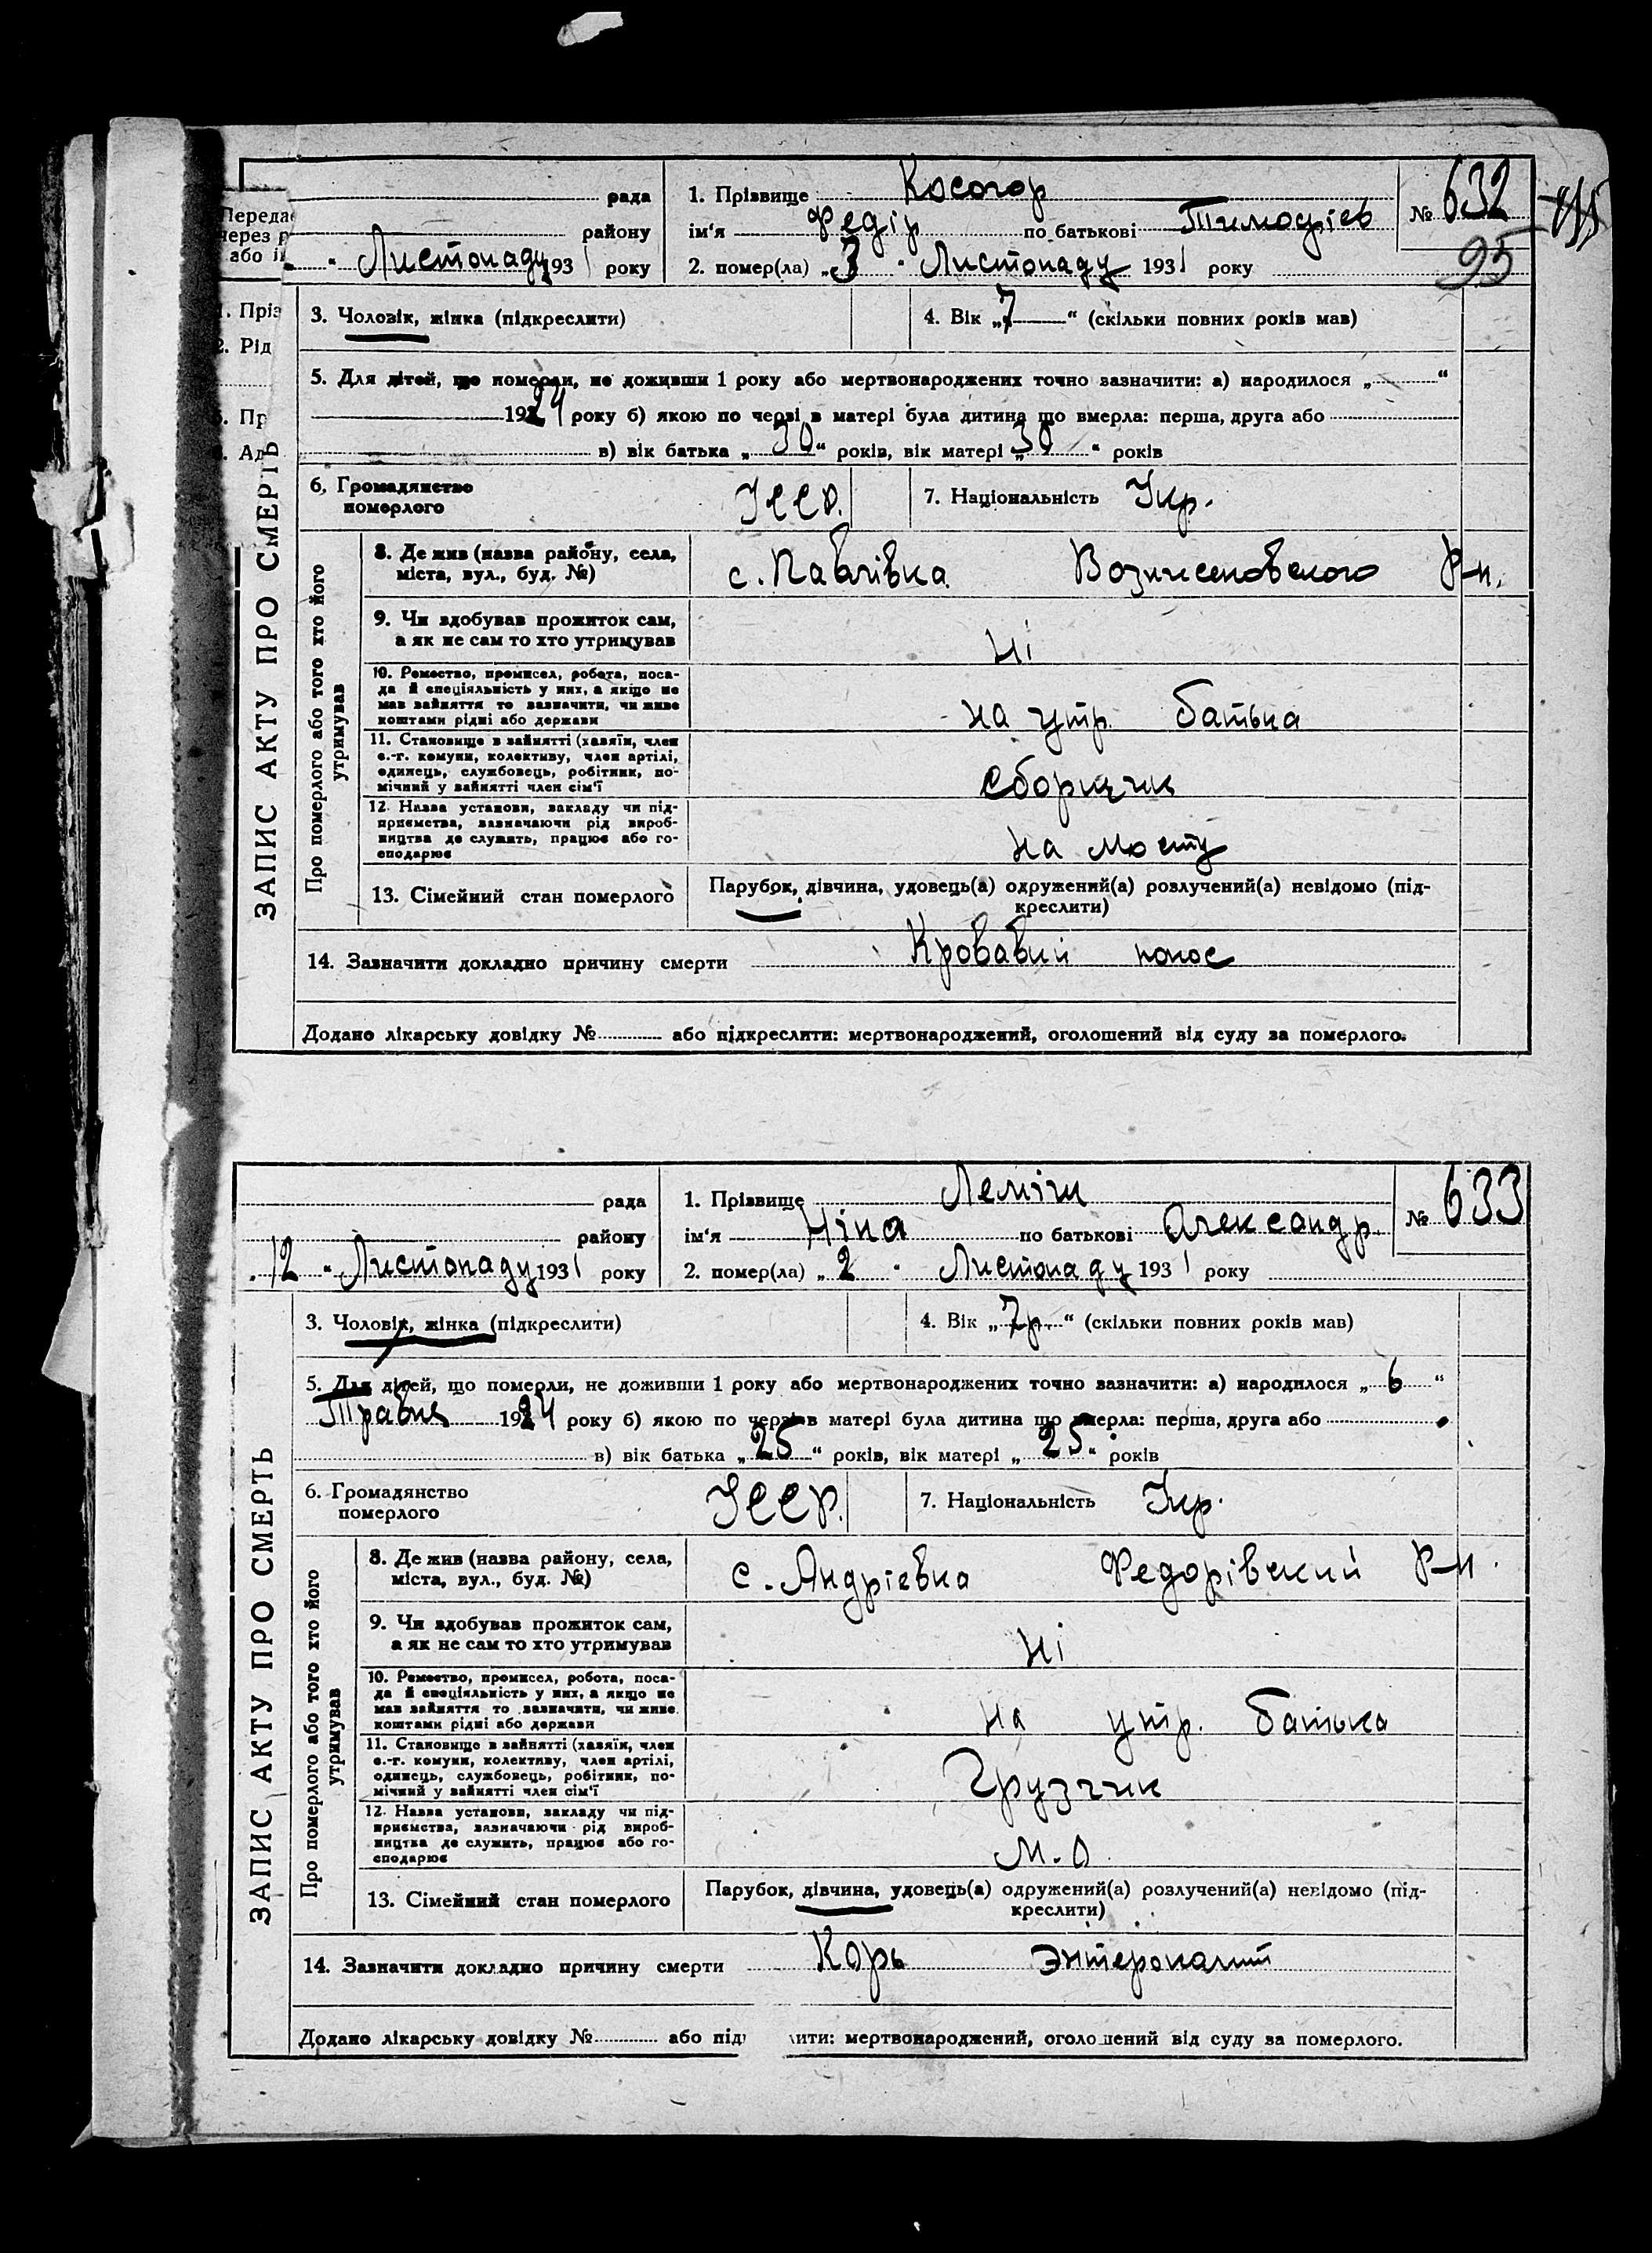 Переда
через р
або ін
1. Пріз
2. Рід
5. Пр
6. Ад
рада
району
" Листопаду 1931 року
1. Прізвище Косогор
ім'я Федір по батькові Тимофіев
2. помер(ла) „3 " Листопаду 1931 року
№ 632
95
3. Чоловік, жінка (підкреслити)
4. Вік „7“ (скільки повних років мав)
5. Для дітей, що померли, не доживши 1 року або мертвонароджених точно зазначити: а) народилося „ “
1924 року б) якою по черзі в матері була дитина що вмерла: перша, друга або
в) вік батька „30“ років, вік матері „30“ років
6. Громадянство
померлого
УССР.
7. Національність Укр.
ЗАПИС АКТУ ПРО СМЕРТЬ
Про померлого або того хто його
утримував
8. Де жив (назва району, села,
міста, вул., буд. №)
с. Павлівка Вознесеновского Р-н.
9. Чи здобував прожиток сам,
а як не сам то хто утримував
Ні
10. Ремество, промисел, робота, поса-
да й спеціяльність у них, а якщо не
мав зайняття то зазначити, чи живе
коштами рідні або держави
на утр. батька
11. Становище в зайнятті (хазяїн, член
с.-г. комуни, колективу, член артілі,
одинець, службовець, робітник, по-
мічний у зайнятті член сім'ї
Сборщик
12. Назва установи, закладу чи під-
приємства, зазначаючи рід вироб-
ництва де служить, працює або го-
сподарює
на мосту
13. Сімейний стан померлого
Парубок, дівчина, удовець(а) одружений(а) розлучений(а) невідомо (під-
креслити)
14. Зазначити докладно причину смерти Кровавий понос
Додано лікарську довідку № або підкреслити: мертвонароджений, оголошений від суду за померлого.
рада
району
„12 " Листопаду 1931 року
1. Прізвище Леміш
ім'я Ніна по батькові Олександр.
2. помер(ла) „2 " Листопаду 1931 року
№ 633
3. Чоловік, жінка (підкреслити)
4. Вік „7р.“ (скільки повних років мав)
5. Для дітей, що померли, не доживши 1 року або мертвонароджених точно зазначити: а) народилося „6“
Травня 1924 року б) якою по черзі в матері була дитина що вмерла: перша, друга або
в) вік батька „25“ років, вік матері „25“ років
6. Громадянство
померлого
УССР.
7. Національність Укр.
ЗАПИС АКТУ ПРО СМЕРТЬ
Про померлого або того хто його
утримував
8. Де жив (назва району, села,
міста, вул., буд. №)
с. Андрієвка Федорівский Р-н.
9. Чи здобував прожиток сам,
а як не сам то хто утримував
Ні
10. Ремество, промисел, робота, поса-
да й спеціяльність у них, а якщо не
мав зайняття то зазначити, чи живе
коштами рідні або держави
на утр. батька
11. Становище в зайнятті (хазяїн, член
с.-г. комуни, колективу, член артілі,
одинець, службовець, робітник, по-
мічний у зайнятті член сім'ї
Грузчик
12. Назва установи, закладу чи під-
приємства, зазначаючи рід вироб-
ництва де служить, працює або го-
сподарює
М.О.
13. Сімейний стан померлого
Парубок, дівчина, удовець(а) одружений(а) розлучений(а) невідомо (під-
креслити)
14. Зазначити докладно причину смерти Корь Энтероколит
Додано лікарську довідку № або під ити: мертвонароджений, оголошений від суду за померлого.